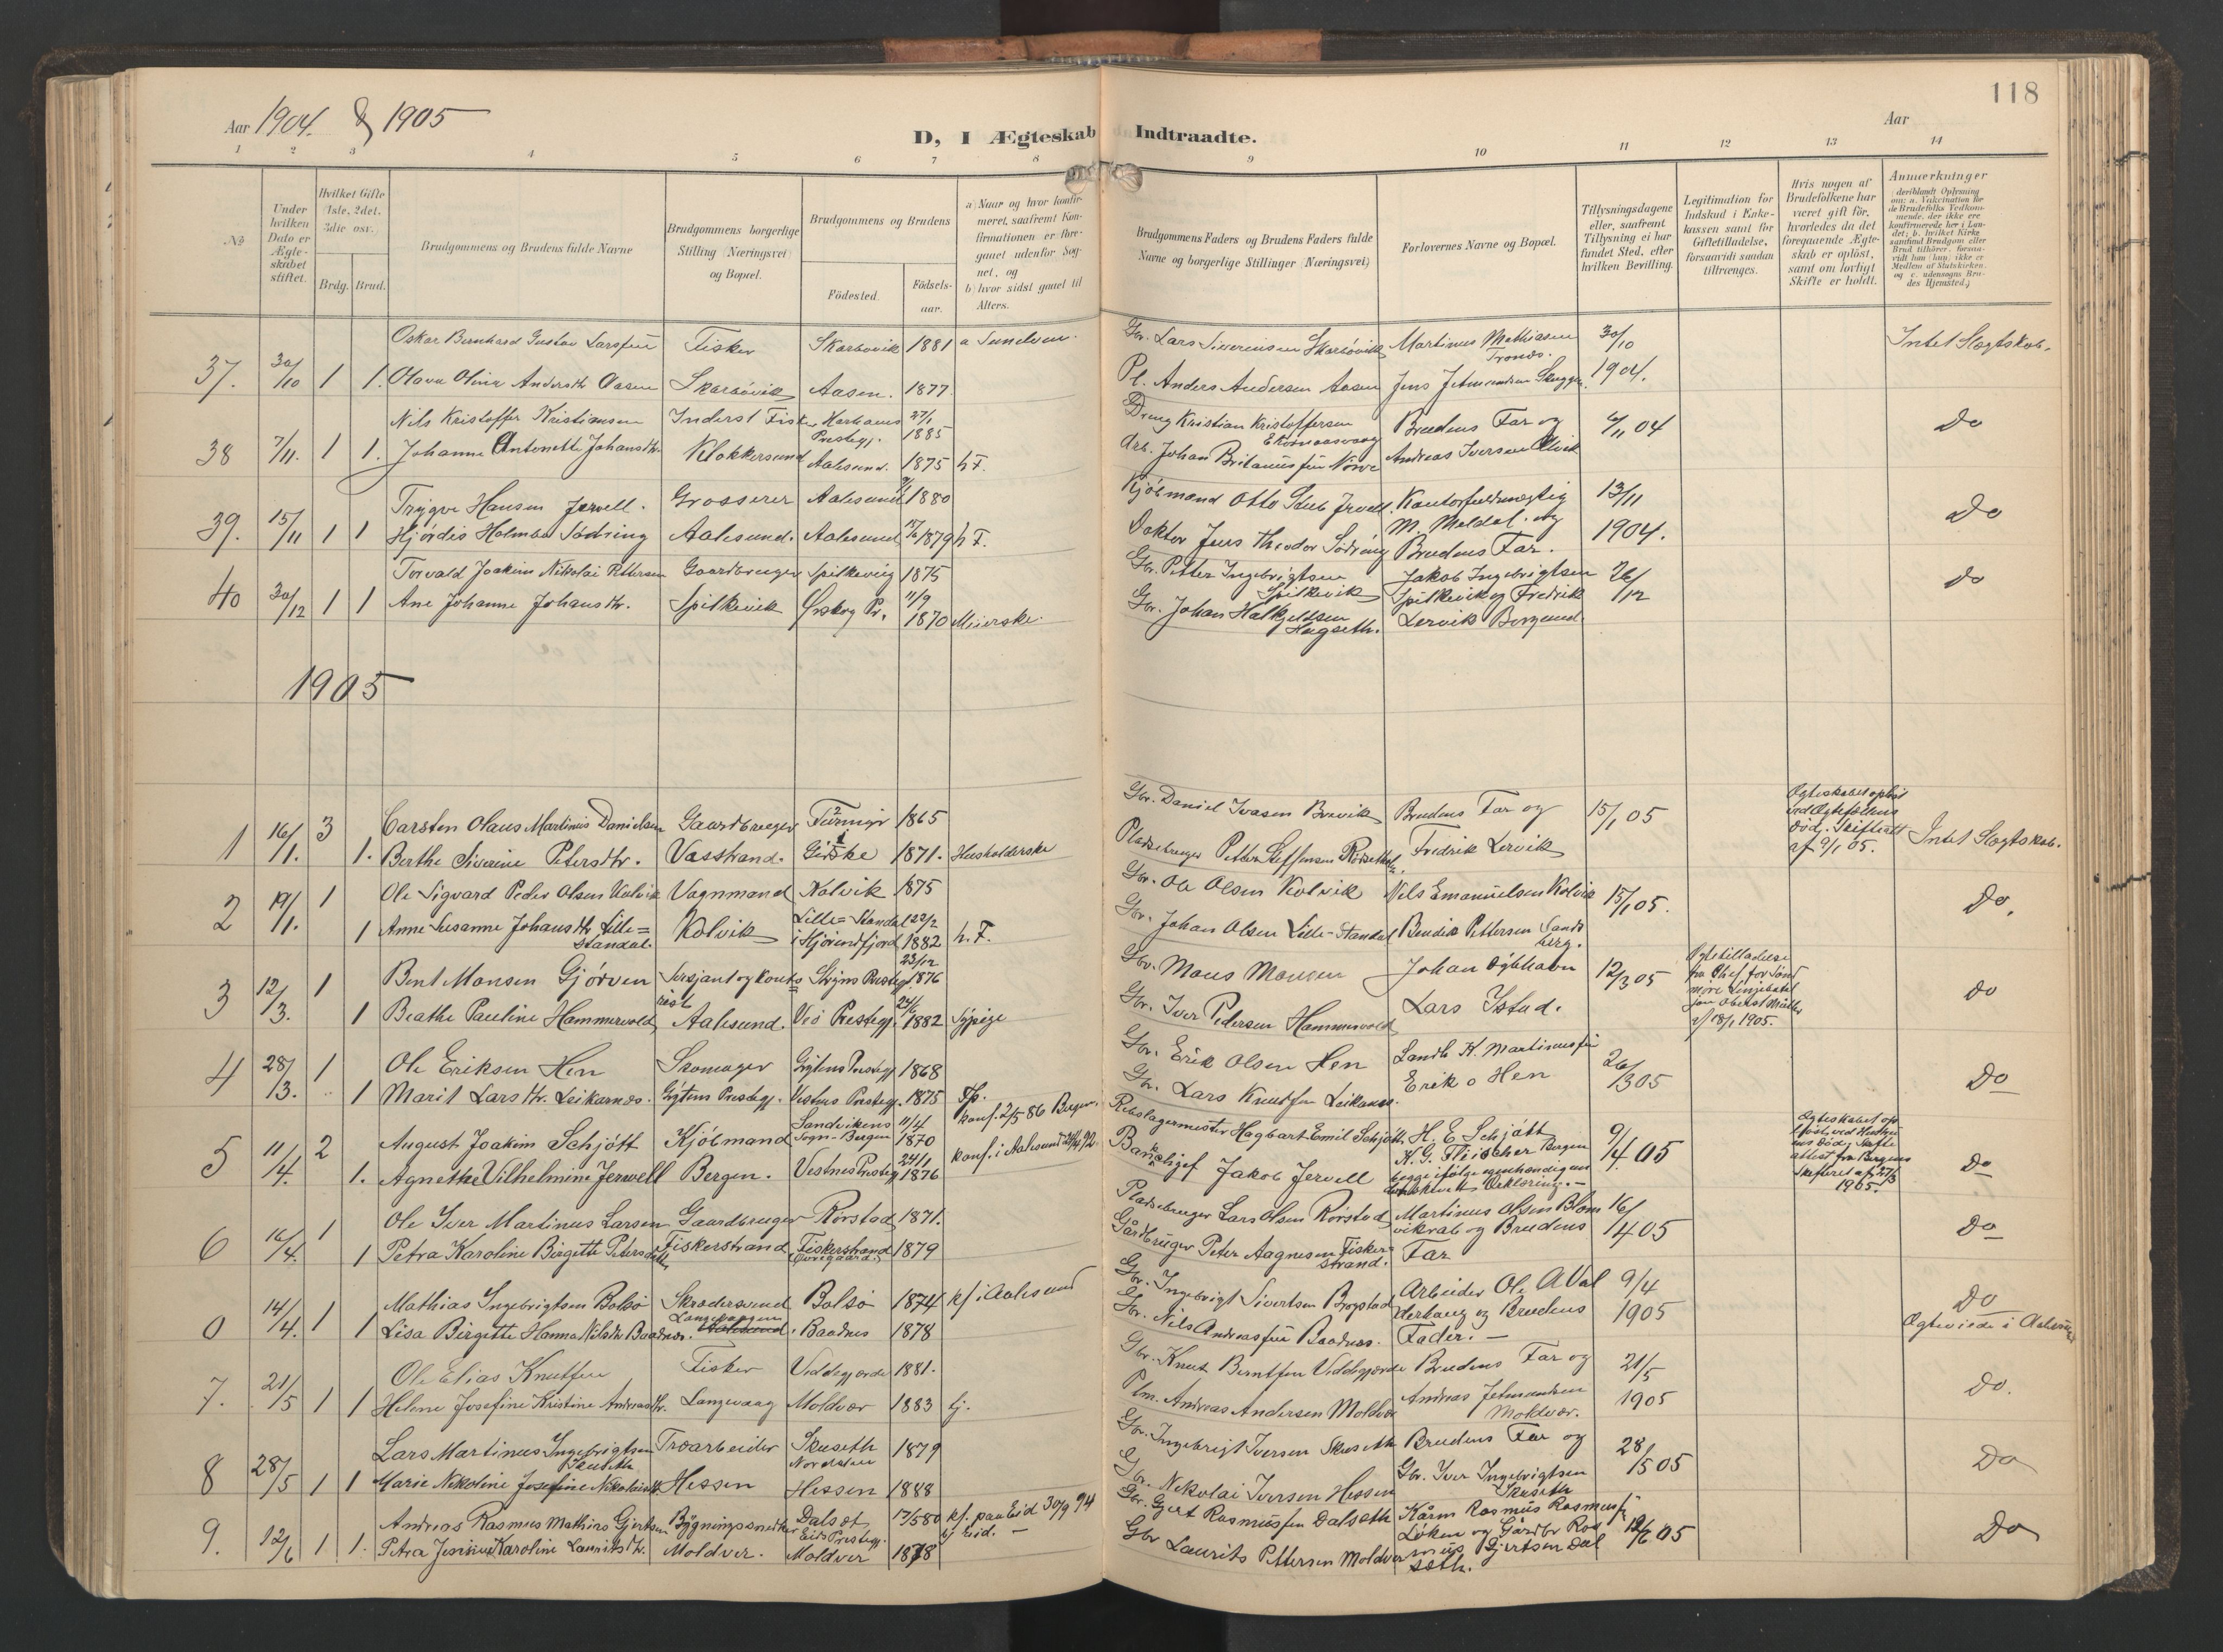 118
Aar 1904. & 1905
Aar
D, I Ægteskab Indtraadte.
1 2 3 4 5 6 7 8 9 10 11 12 13 14
№
Under hvilken Dato er Ægteskabet stiftet.
Hvilket Gifte (1ste, 2det, 3die osv.
Brdg. Brud.
Brudgommens og Brudens fulde Navne
Brudgommens borgerlige Stilling (Næringsvei) og Bopæl.
Brudgommens og Brudens
Fødested.
Fødsels-aar.
a) Naar og hvor konfirmeret, saafremt Konfirmationen er foregaaet udenfor Sognet, og
b) hvor sidst gaaet til Alters.
Brudgommens Faders og Brudens Faders fulde Navne og borgerlige Stillinger (Næringsvei)
Forlovernes Navne og Bopæl.
Tillysningsdagene eller, saafremt Tillysning ei har fundet Sted, efter hvilken Bevilling.
Legitimation for Indskud i Enkekassen samt for Giftetilladelse, forsaavidt saadan tiltrænges.
Hvis nogen af Brudefolkene har været gift før, hvorledes da det foregaaende Ægteskab er opløst, samt om lovligt Skifte er holdt.
Anmærkninger
(deriblandt Oplysning om: a. Vakcination for de Brudefolks Vedkommende, der ikke ere konfirmerede her i Landet; b. hvilket Kirkesamfund Brudgom eller Brud tilhører, forsaavidt han (hun) ikke er Medlem af Statskirken, og c. udensogns Brudes Hjemsted.)
37. 30/10 1 1. Oskar Bernhard Gustav Larssen Fisker Skarbøvik 1881 Gbr. Lars Siverinsen Skarbøvik Martinus Mathiasen 30/10 Intet Slægtskab.
Olava Olina Andersdtr Aasen Skarbøvik Aasen. 1877. Pl. Anders Andersen Aasen Jens 1904.
38 7/11. 1 1. Nils Kristoffer Kristiansen Inderst Fisker 27/1 1885 Dreng Kristian Kristoffersen Brudens Far og 6/11 04 Do
Johanne Antonette Johansdtr. Klokkersund Aalesund. 1875 h F. Arb. Johan Andreas Iversen
39. 15/11 1 1 Trygve Hansen Jervell. Grosserer Aalesund 1880 Kjøbmand Otto Jervell. Kontorfuldmægtig 13/11 Do
Hjørdis Holmboe Sødring Aalesund. Aalesund 1879 h F. Doktor Jens Theodor Sødring M. Meldal. og Brudens Far. 1904.
40 30/12 1 1 Torvald Joakim Nikolai Pettersen Gaardbruger Spilkevig 1875 Gbr. Petter Ingebrigtsen Spilkevik Jakob Ingebrigtsen 26/12 Do
Ane Johanne Johansdtr. Spilkevik Ørskog Pr. 11/9 1870 Meierske. Gbr. Johan Hagseth. Spilkevik og Fredrik Lervik Borgund.
1905
1 16/1. 3 1. Carsten Olaus Martinus Danielsen Gaardbruger 1865 Gbr. Daniel Brevik Brudens Far og 15/1 05 Ægteskabet opløst ved Ægtefællens Død. Skifteatt af 9/1 05. Intet Slægtskab.
Berthe Siverine Petersdtr. Vasstrand. Giske 1871. Husholderske Pladsebruger Petter Steffensen Fredrik Lervik
2 19/1. 1 1 Ole Sigvard Peder Olsen Kolvik Vognmand Kolvik 1875 Gbr. Ole Olsen Kolvik Nils Emanuelsen Kolvik 15/1 05. Do.
Anne Susanne Johansdtr Lille=Standal. Kolvik Lille=Standal i Hjørundfjord 22/2 1882 h. F. Gbr. Johan Olsen Lille-Standal Bendik Pettersen Sandsberg.
3 12/3. 1 1 Bent Monsen Gjørven Sersjant og kontorist Stryns Prestegj. 23/12 1876 Gbr. Mons Monsen Johan 12/3 05 Ægtetilladelse fra Chef for Søndmøre Linjebatal 18/1 1905. Do
Beathe Pauline Hammervold Aalesund. Vø Prestegj. 1882 Sypige Gbr. Iver Pedersen Hammervold Lars Ystad.
4 28/3. 1 1 Ole Eriksen Hen Skomager Grytens Prestegj 1868 Gbr. Erik Olsen Hen Landh K. Martinussen 26/3 05 Do
Marit Larsdtr. Leikarnes. Grytens Prestegj. Vestnes Prestegj. 1875 Gbr. Lars Knutsen Leikarnes. Erik O Hen
5 11/4. 2 1. August Joakim Schjøtt Kjøbmand Sandvikens Sogn-Bergen 11/4 1870 konf. 2/5 86 Bergen. Rebslagermester Hagbart Emil Schjøtt H. E. Schjøtt 9/4. 05 Ægteskabet opløst ved Hustruens Død; Skifteattest fra Bergens Skifteret af 27/3 1905. Do
Agnethe Vilhelmine Jervell Bergen. Vestnes Prestegj 24/1 1876 konf. i Aalesund Bankchef Jakob Jervell K. G. Fleischer Bergen begge ifølge egenhændig underskrevet Erklæring.
6 16/4. 1 1 Ole Iver Martinus Larsen Gaardbruger Rørstad 1871. Pladsebruger Lars Olsen Rørstad Martinus Olsen Blomvikrab og Brudens Far 16/4 05 Do
Petra Karoline Birgitte Petersdtr Fiskerstrand Fiskerstrand 1879 Gårdbruger Peter Aagnesen Fiskerstrand.
0 14/4. 1 1 Mathias Ingebrigtsen Bolsø Skræddersvend Bolsø 1874 kf i Aalesund Gbr. Ingebrigt Sivertsen Arbeider Ole A Val 9/4 Do
Lisa Birgitte Hanna Nilsdtr Baadnes. Langevaagen Aalesund. Baadnes 1878 Gbr. Nils Andreassen Baadnes. og Brudens Fader. 1905 Ægteviede i Aalesund
7. 21/5 1 1 Ole Elias Knutsen Fisker Viddegjerde 1881. Gbr. Knut Berntsen Viddegjerde Brudens Far og 21/5 Do.
Helene Josefine Kristine Andreasdtr. Langevaag Moldvær 1883 Plm. Andreas Andersen Moldvær Andreas Moldvær. 1905
8 28/5 1 1 Lars Martinus Ingebrigtsen Skuseth Træarbeider Skuseth 1879 Gbr. Ingebrigt Iversen Skuseth Brudens Far og 28/5 05 Do
Marie Nikoline Josefine Nikolaidtr. Hessen Hessen 1888 Gbr. Nikolai Iversen Hessen Gbr. Iver Ingebrigtsen Skuseth
9. 12/6 1 1. Andreas Rasmus Mathias Gjertsen Bygningssnedker Dalset Eids Prestegj. 17/5 80 kf. paa Eid 30/9 94 Gbr. Gjert Rasmussen Dalseth Kårm Rasmus Rasmussen Løken og Gårdbr Rasmus Gjertsen Dalseth. 12/6 05 Do
Petra Karoline Lauritsdtr. Moldver. Moldver 1878 Gbr Laurits Pettersen Moldver